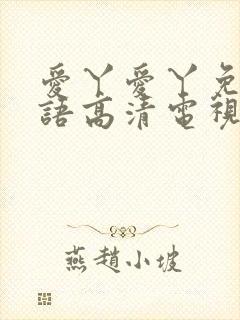 愛丫愛丫免
語高清電視
燕趙小坡